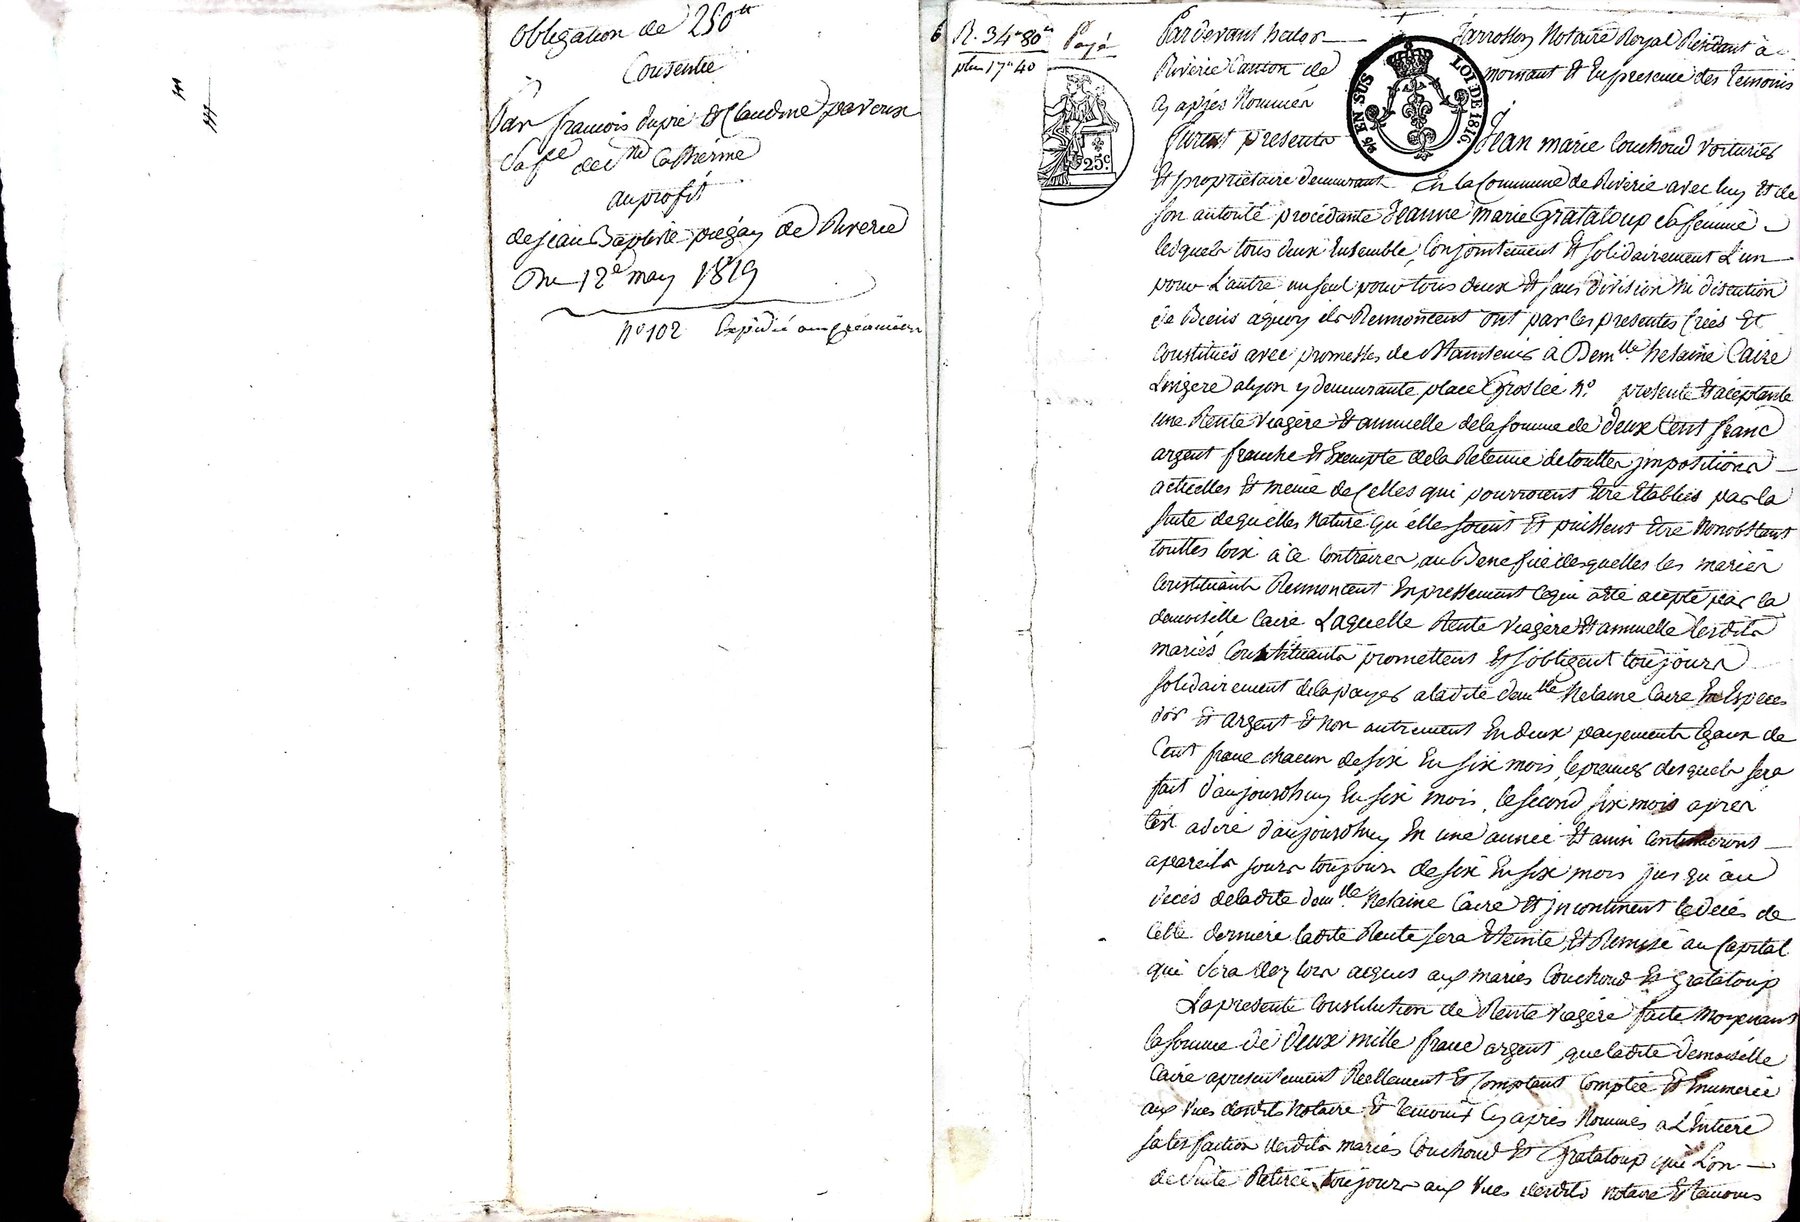 obligation de 250 tt
Consentie
Par francois dupré et Claudine
sa fe de Ste Catherine
au profit
de jean Baptiste de Riverie
Du 12e may 1819
no 102 Expédié
6 R. 34 80
plus 17 40
Payé
25c.
9/6 EN SUS LOI DE 1816.
Pardevant Notaire Royal Résidant à
Riverie Canton de mornant Et En presence des temoins
Cy après Nommés
furent presents Jean marie Couchoud voiturier
Et propriétaire demeurant En la Commune de Riverie avec luy Et de
son autorité procédante Jeanne marie Grataloup sa femme
lesquels tous deux Ensemble, Conjointement Et solidairement L'un
pour L'autre un seul pour tous deux Et sans division Ni discution
de Biens aquoy ils Renoncent ont par les presentes Créés Et
Constitués avec promesses de Maintenir à Demlle helaine Caire
Lingere alyon y demeurante place Groslée no. presente Et aceptante
une Rente Viagère Et annuelle de la somme de deux Cent franc
argent franche Et Exempte de la Retenue de touttes jmpositions
actuelles Et meme de Celles qui pourroient Etre Etablies par la
suite de quelles Nature qu'elles soient Et puissent Etre Nonobstant
touttes loix à ce Contraires, au Benefice desquelles les mariés
Constituants Renoncent Expressement Ce qui a été acepté par la
demoiselle Caire Laquelle Rente Viagère Et annuelle lesdits
mariés Constituants promettent Et s'obligent toujours
solidairement de la payer a la dite demlle helaine Caire En Especes
d'or Et argent Et non autrement En deux payements Egaux de
Cent franc chacun de six En six mois, le premier desquels sera
fait d'aujourdhuy En six mois, le second six mois après
C'est adire d'aujourdhuy En une année Et ainsi Continueront
apareils jours toujours de six En six mois jusqu'au
décès de ladite demlle helaine Caire Et jncontinent le décés de
Cette derniere ladite Rente sera Eteinte, Et Remise au Capital
qui sera dez lors acquis aux mariés Couchoud Et Grataloup
La presente Constitution de Rente Viagère faite Moyenant
la somme de deux mille franc argent que ladite demoiselle
Caire a presentement Reellement Et Comptant Comptée Et Enumerée
aux Vues desdits Notaire Et temoins Cy après Nommés a L'Entiere
satisfaction desdits mariés Couchoud Et Grataloup qui L'on
de suite Retirée toujours aux Vues desdits notaire Et temoins